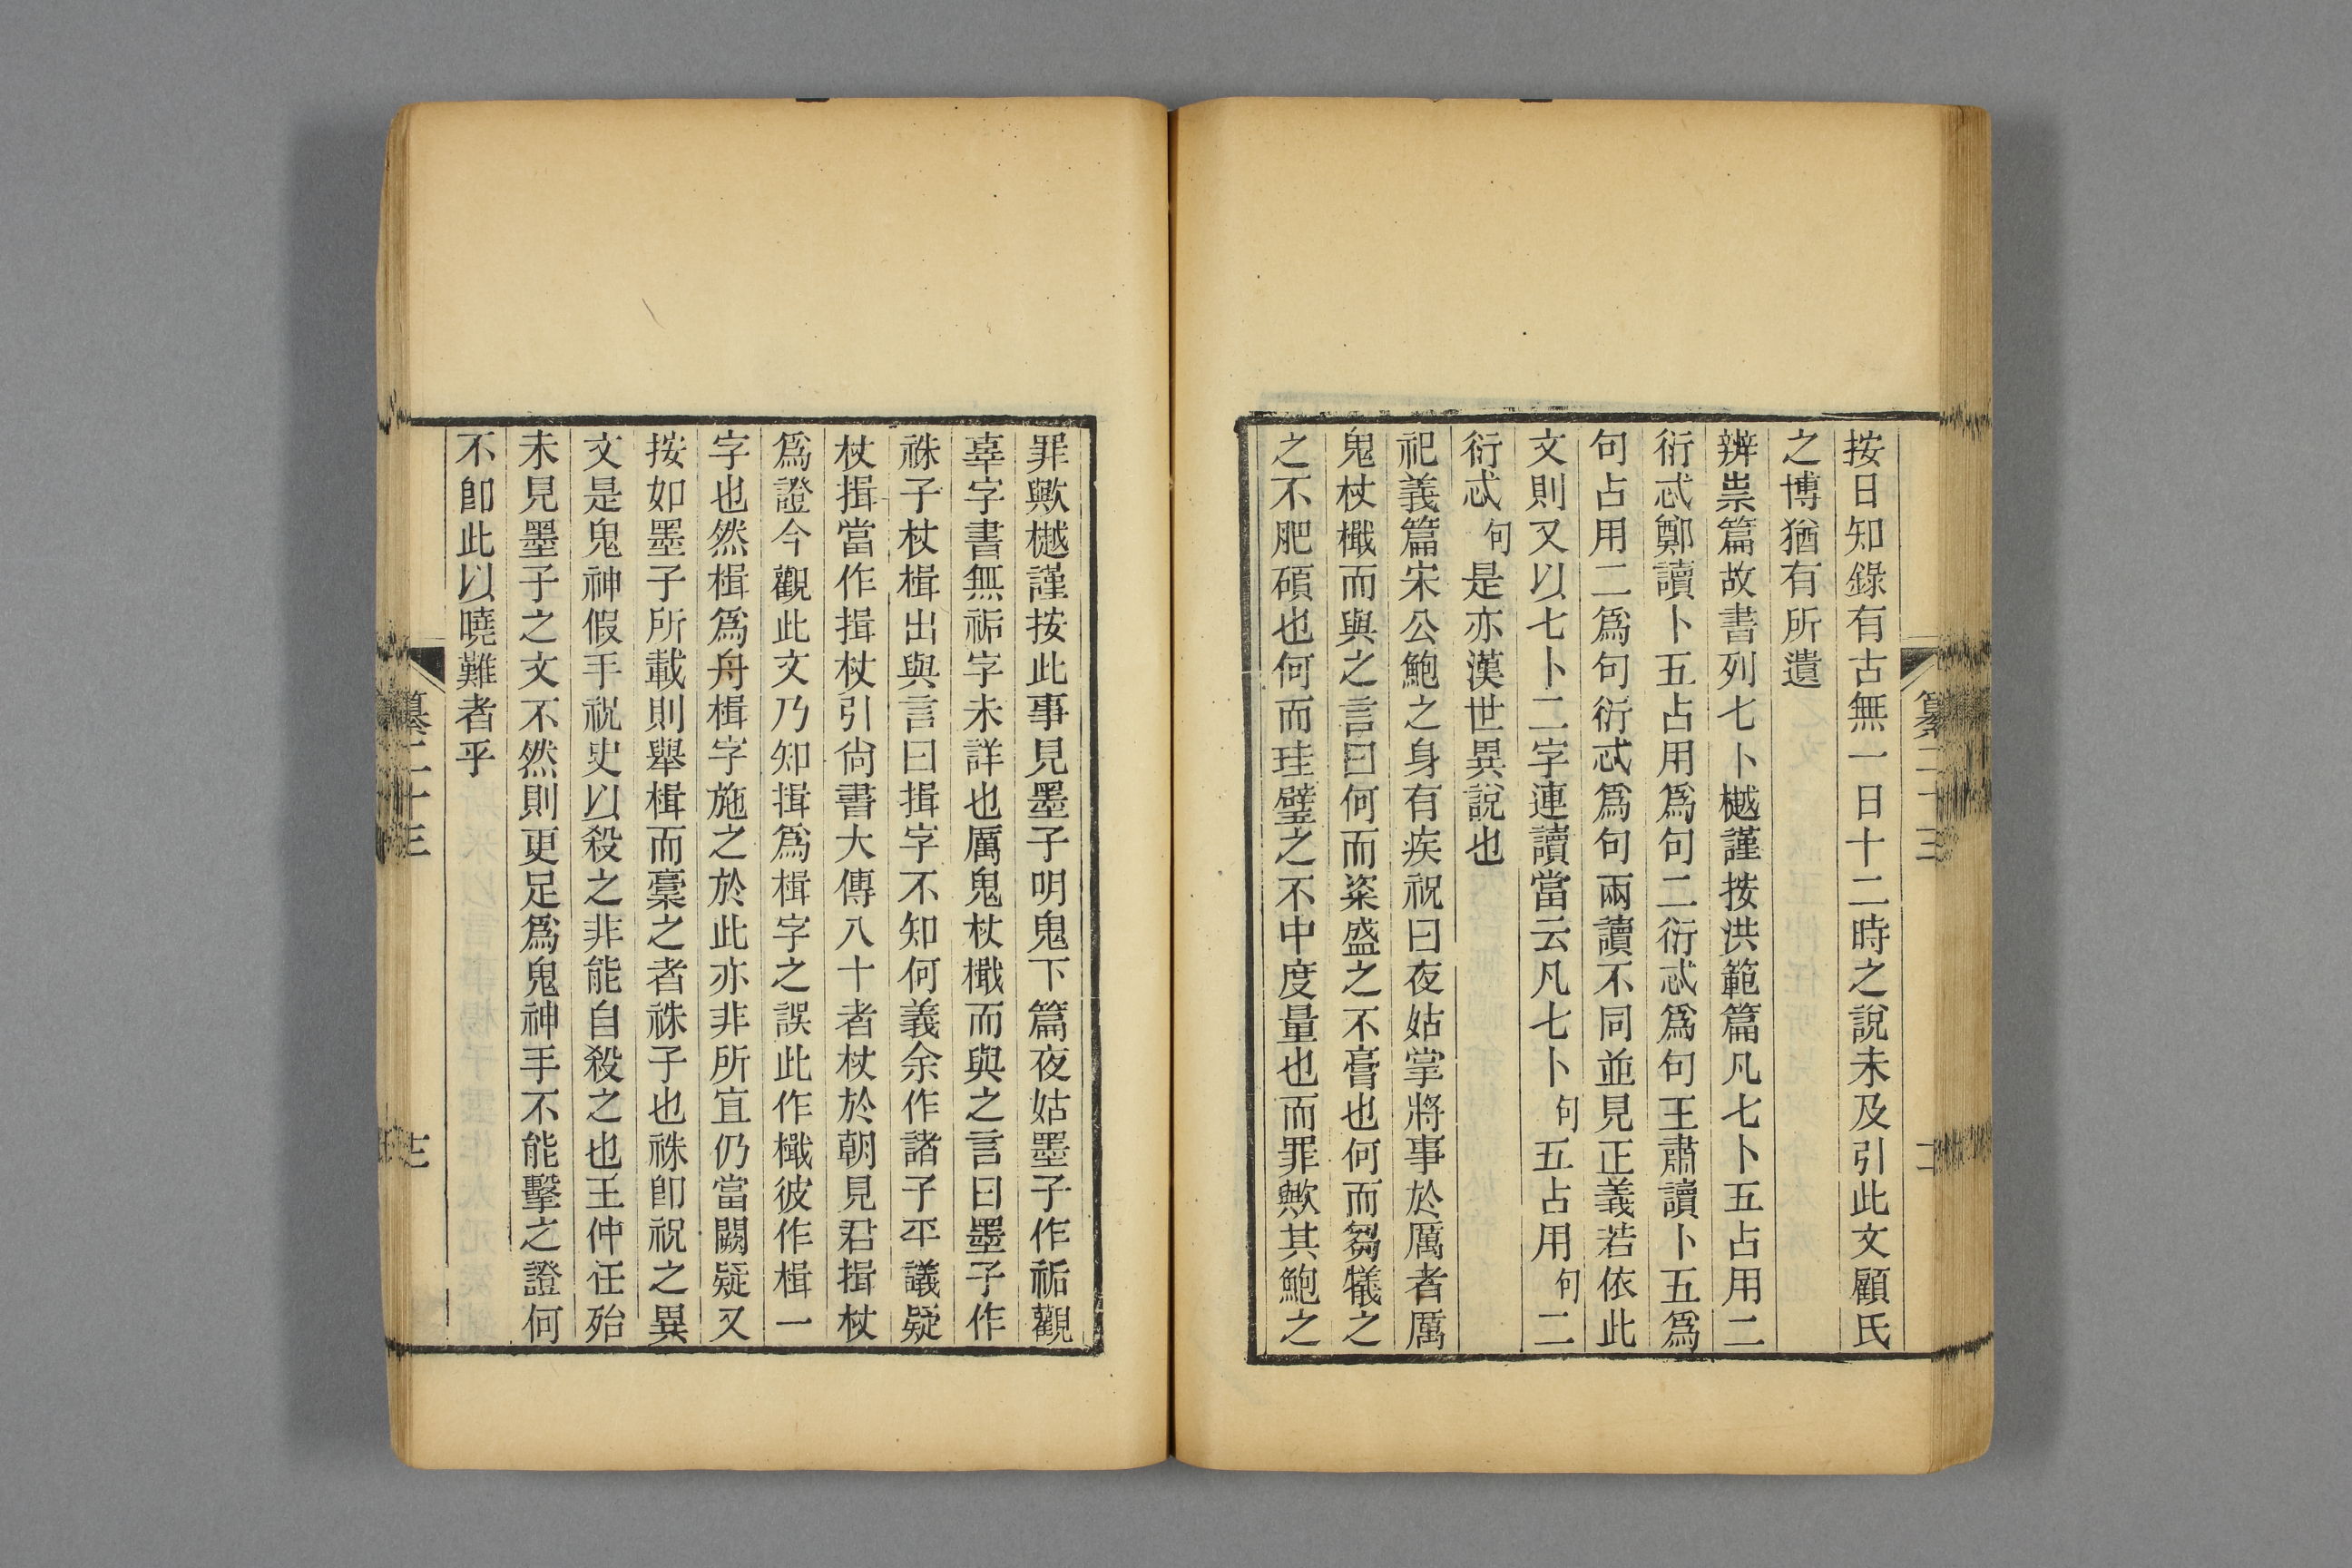 按日知錄有古無一日十二時之說未及引此文顧氏
之博猶有所遺
辨祟篇故書列七卜樾謹按洪範篇凡七卜五占用二
衍忒鄭讀卜五占用爲句二衍忒爲句王肅讀卜五爲
句占用二爲句衍忒爲句兩讀不同並見正義若依此
文則又以七卜二字連讀當云凡七卜句五占用句二
衍忒句是亦漢世異說也
祀義篇宋公鮑之身有疾祝曰夜姑掌將事於厲者厲
鬼杖檝而與之言曰何而粢盛之不膏也何而芻犧之
之不肥碩也何而珪璧之不中度量也而罪歟其鮑之
罪歟樾謹按此事見墨子明鬼下篇夜姑墨子作𥙐觀
辜字書無𥙐字未詳也厲鬼杖檝而與之言曰墨子作
祩子杖楫出與言曰揖字不知何義余作諸子平議疑
杖揖當作揖杖引尙書大傳八十者杖於朝見君揖杖
爲證今觀此文乃知揖爲楫字之誤此作檝彼作楫一
字也然楫爲舟楫字施之於此亦非所宜仍當闕疑又
按如墨子所載則舉楫而槀之者祩子也祩卽祝之異
文是鬼神假手祝史以殺之非能自殺之也王仲任殆
未見墨子之文不然則更足爲鬼神手不能擊之證何
不卽此以曉難者乎
纂二十三